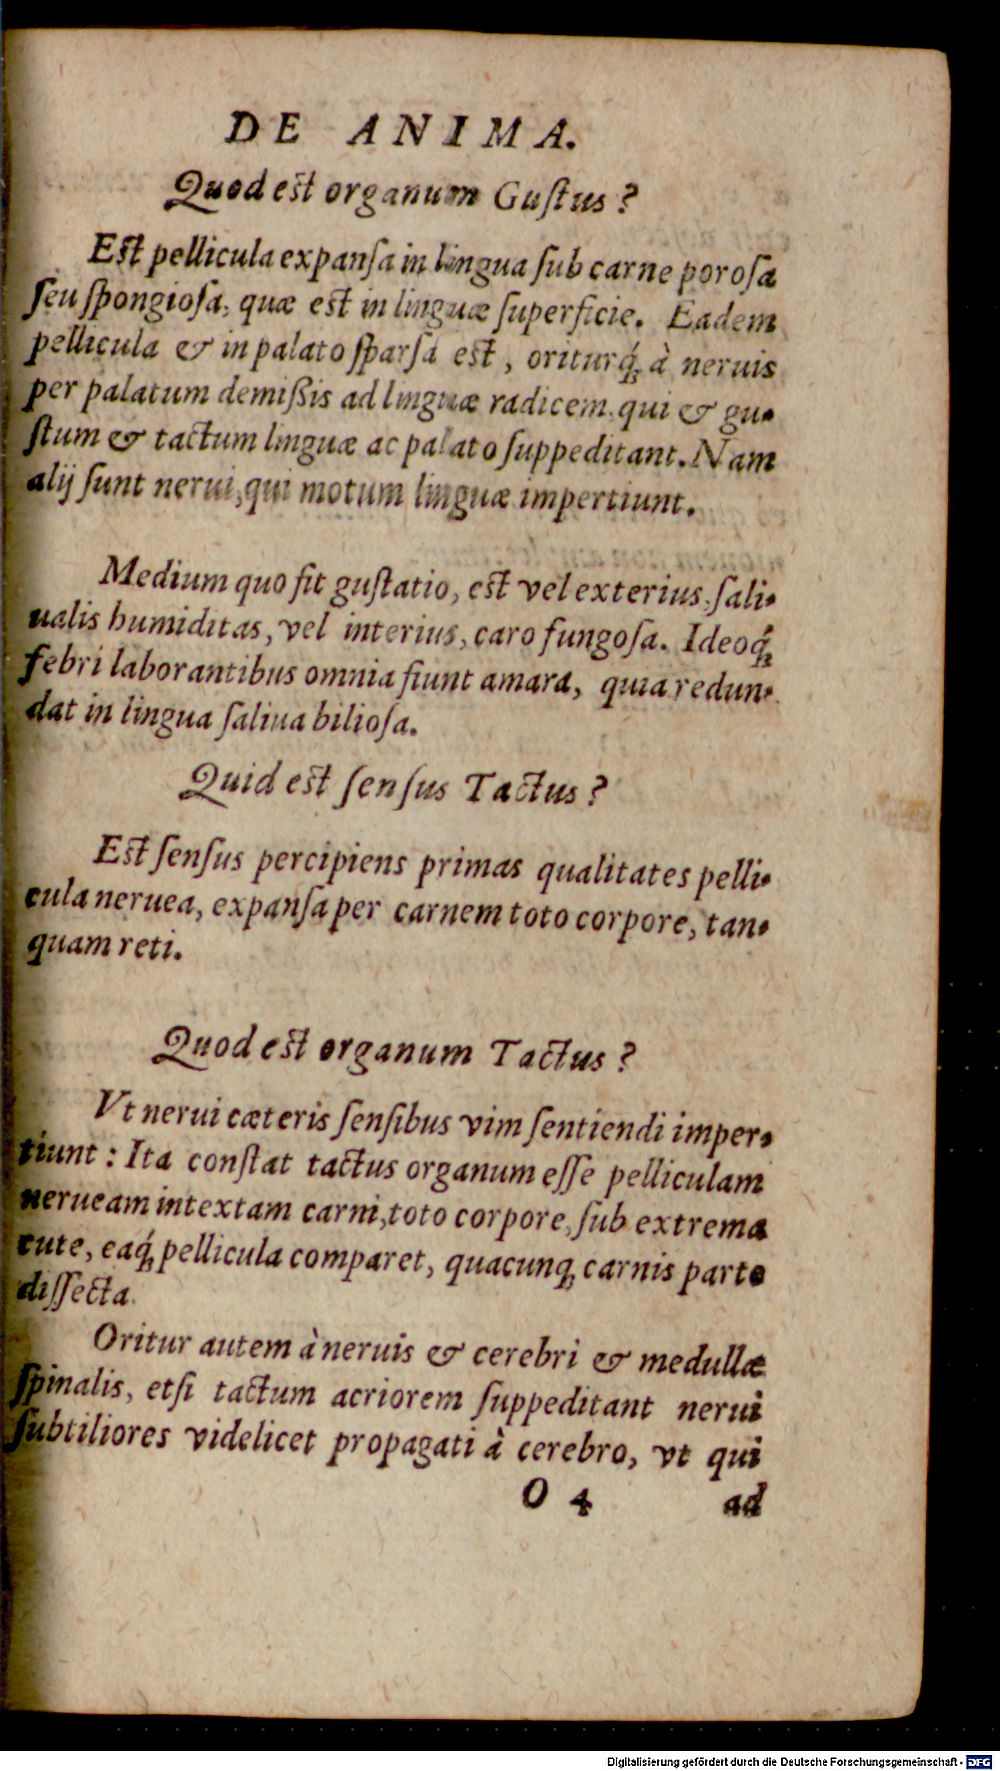 DE ANIMA.
Quod est organum Guſtus?
Est pellicula expanſa in lingua ſub carne poroſa
ſeu ſpongioſa, quæ est in linguæ ſuperficie. Eadem
pellicula & in palato ſparſa est, oriturq́; à neruis
per palatum demißis ad linguæ radicem, qui & gu-
ſtum & tactum linguæ ac palato ſuppeditant. Nam
alij ſunt nerui, qui motum linguæ impertiunt.
Medium quo fit guſtatio, est vel exterius, ſali-
ualis humiditas, vel interius, caro fungoſa. Ideoq́;
febri laborantibus omnia fiunt amara, quia redun-
dat in lingua ſaliua bilioſa.
Quid est ſenſus Tactus?
Est ſenſus percipiens primas qualitates pelli-
cula neruea, expanſa per carnem toto corpore, tan-
quam reti.
Quod est organum Tactus?
Vt nerui cæteris ſenſibus vim ſentiendi imper-
tiunt: Ita conſtat tactus organum eſſe pelliculam
nerueam intextam carni, toto corpore, ſub extrema
cute, eaq́; pellicula comparet, quacunq; carnis parte
diſſecta.
Oritur autem à neruis & cerebri & medullæ
ſpinalis, etſi tactum acriorem ſuppeditant nerui
ſubtiliores videlicet propagati à cerebro, vt qui
O 4 ad
Digitalisierung gefördert durch die Deutsche Forschungsgemeinschaft - DFG